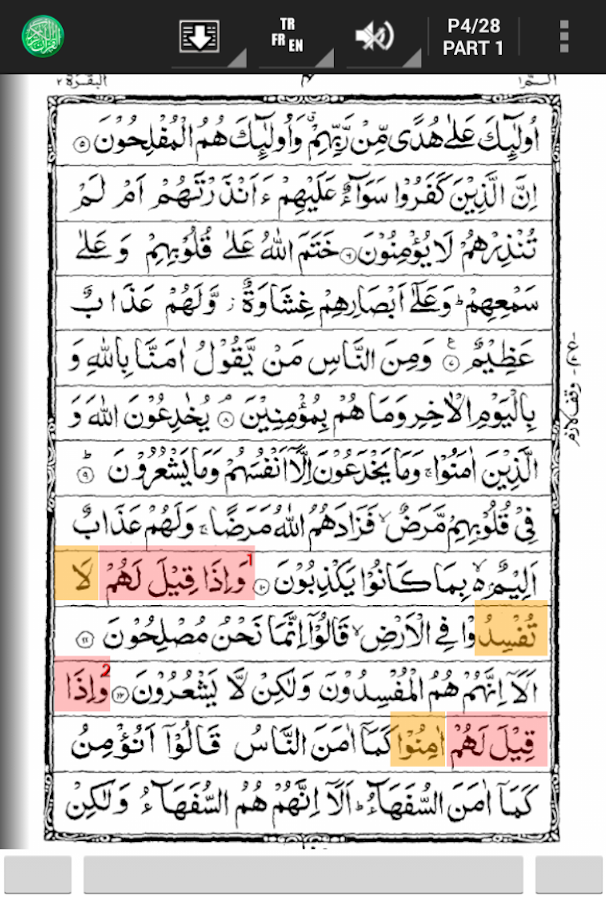 TR
FR EN
P4/28
PART 1
البقرة ٢
٤
الٓمّٓ ١
اُولٰٓئِكَ عَلٰى هُدًى مِّنْ رَّبِّهِمْ ۙ وَاُولٰٓئِكَ هُمُ الْمُفْلِحُوْنَ ۝۵
اِنَّ الَّذِيْنَ كَفَرُوْا سَوَآءٌ عَلَيْهِمْ ءَاَنْذَرْتَهُمْ اَمْ لَمْ
تُنْذِرْهُمْ لَا يُؤْمِنُوْنَ ۝۶ خَتَمَ اللّٰهُ عَلٰى قُلُوْبِهِمْ وَ عَلٰى
سَمْعِهِمْ ؕ وَعَلٰٓى اَبْصَارِهِمْ غِشَاوَةٌ ز وَّلَهُمْ عَذَابٌ
عَظِيْمٌ ۝۷ ع وَمِنَ النَّاسِ مَنْ يَّقُوْلُ اٰمَنَّا بِاللّٰهِ وَ
بِالْيَوْمِ الْاٰخِرِ وَمَا هُمْ بِمُؤْمِنِيْنَ ۝۸ۘ يُخٰدِعُوْنَ اللّٰهَ وَ
الَّذِيْنَ اٰمَنُوْا ۚ وَمَا يَخْدَعُوْنَ اِلَّاۤ اَنْفُسَهُمْ وَمَا يَشْعُرُوْنَ ۝۹ؕ
فِيْ قُلُوْبِهِمْ مَّرَضٌ ۙ فَزَادَهُمُ اللّٰهُ مَرَضًا ۚ وَلَهُمْ عَذَابٌ
اَلِيْمٌۢ ۙ۬ بِمَا كَانُوْا يَكْذِبُوْنَ ۝۱۰ 1 وَاِذَا قِيْلَ لَهُمْ لَا
تُفْسِدُوْا فِى الْاَرْضِ ۙ قَالُوْۤا اِنَّمَا نَحْنُ مُصْلِحُوْنَ ۝۱۱
اَلَاۤ اِنَّهُمْ هُمُ الْمُفْسِدُوْنَ وَلٰكِنْ لَّا يَشْعُرُوْنَ ۝۱۲ 2 وَاِذَا
قِيْلَ لَهُمْ اٰمِنُوْا كَمَاۤ اٰمَنَ النَّاسُ قَالُوْۤا اَنُؤْمِنُ
كَمَاۤ اٰمَنَ السُّفَهَآءُ ؕ اَلَاۤ اِنَّهُمْ هُمُ السُّفَهَآءُ وَلٰكِنْ
وقف لازم